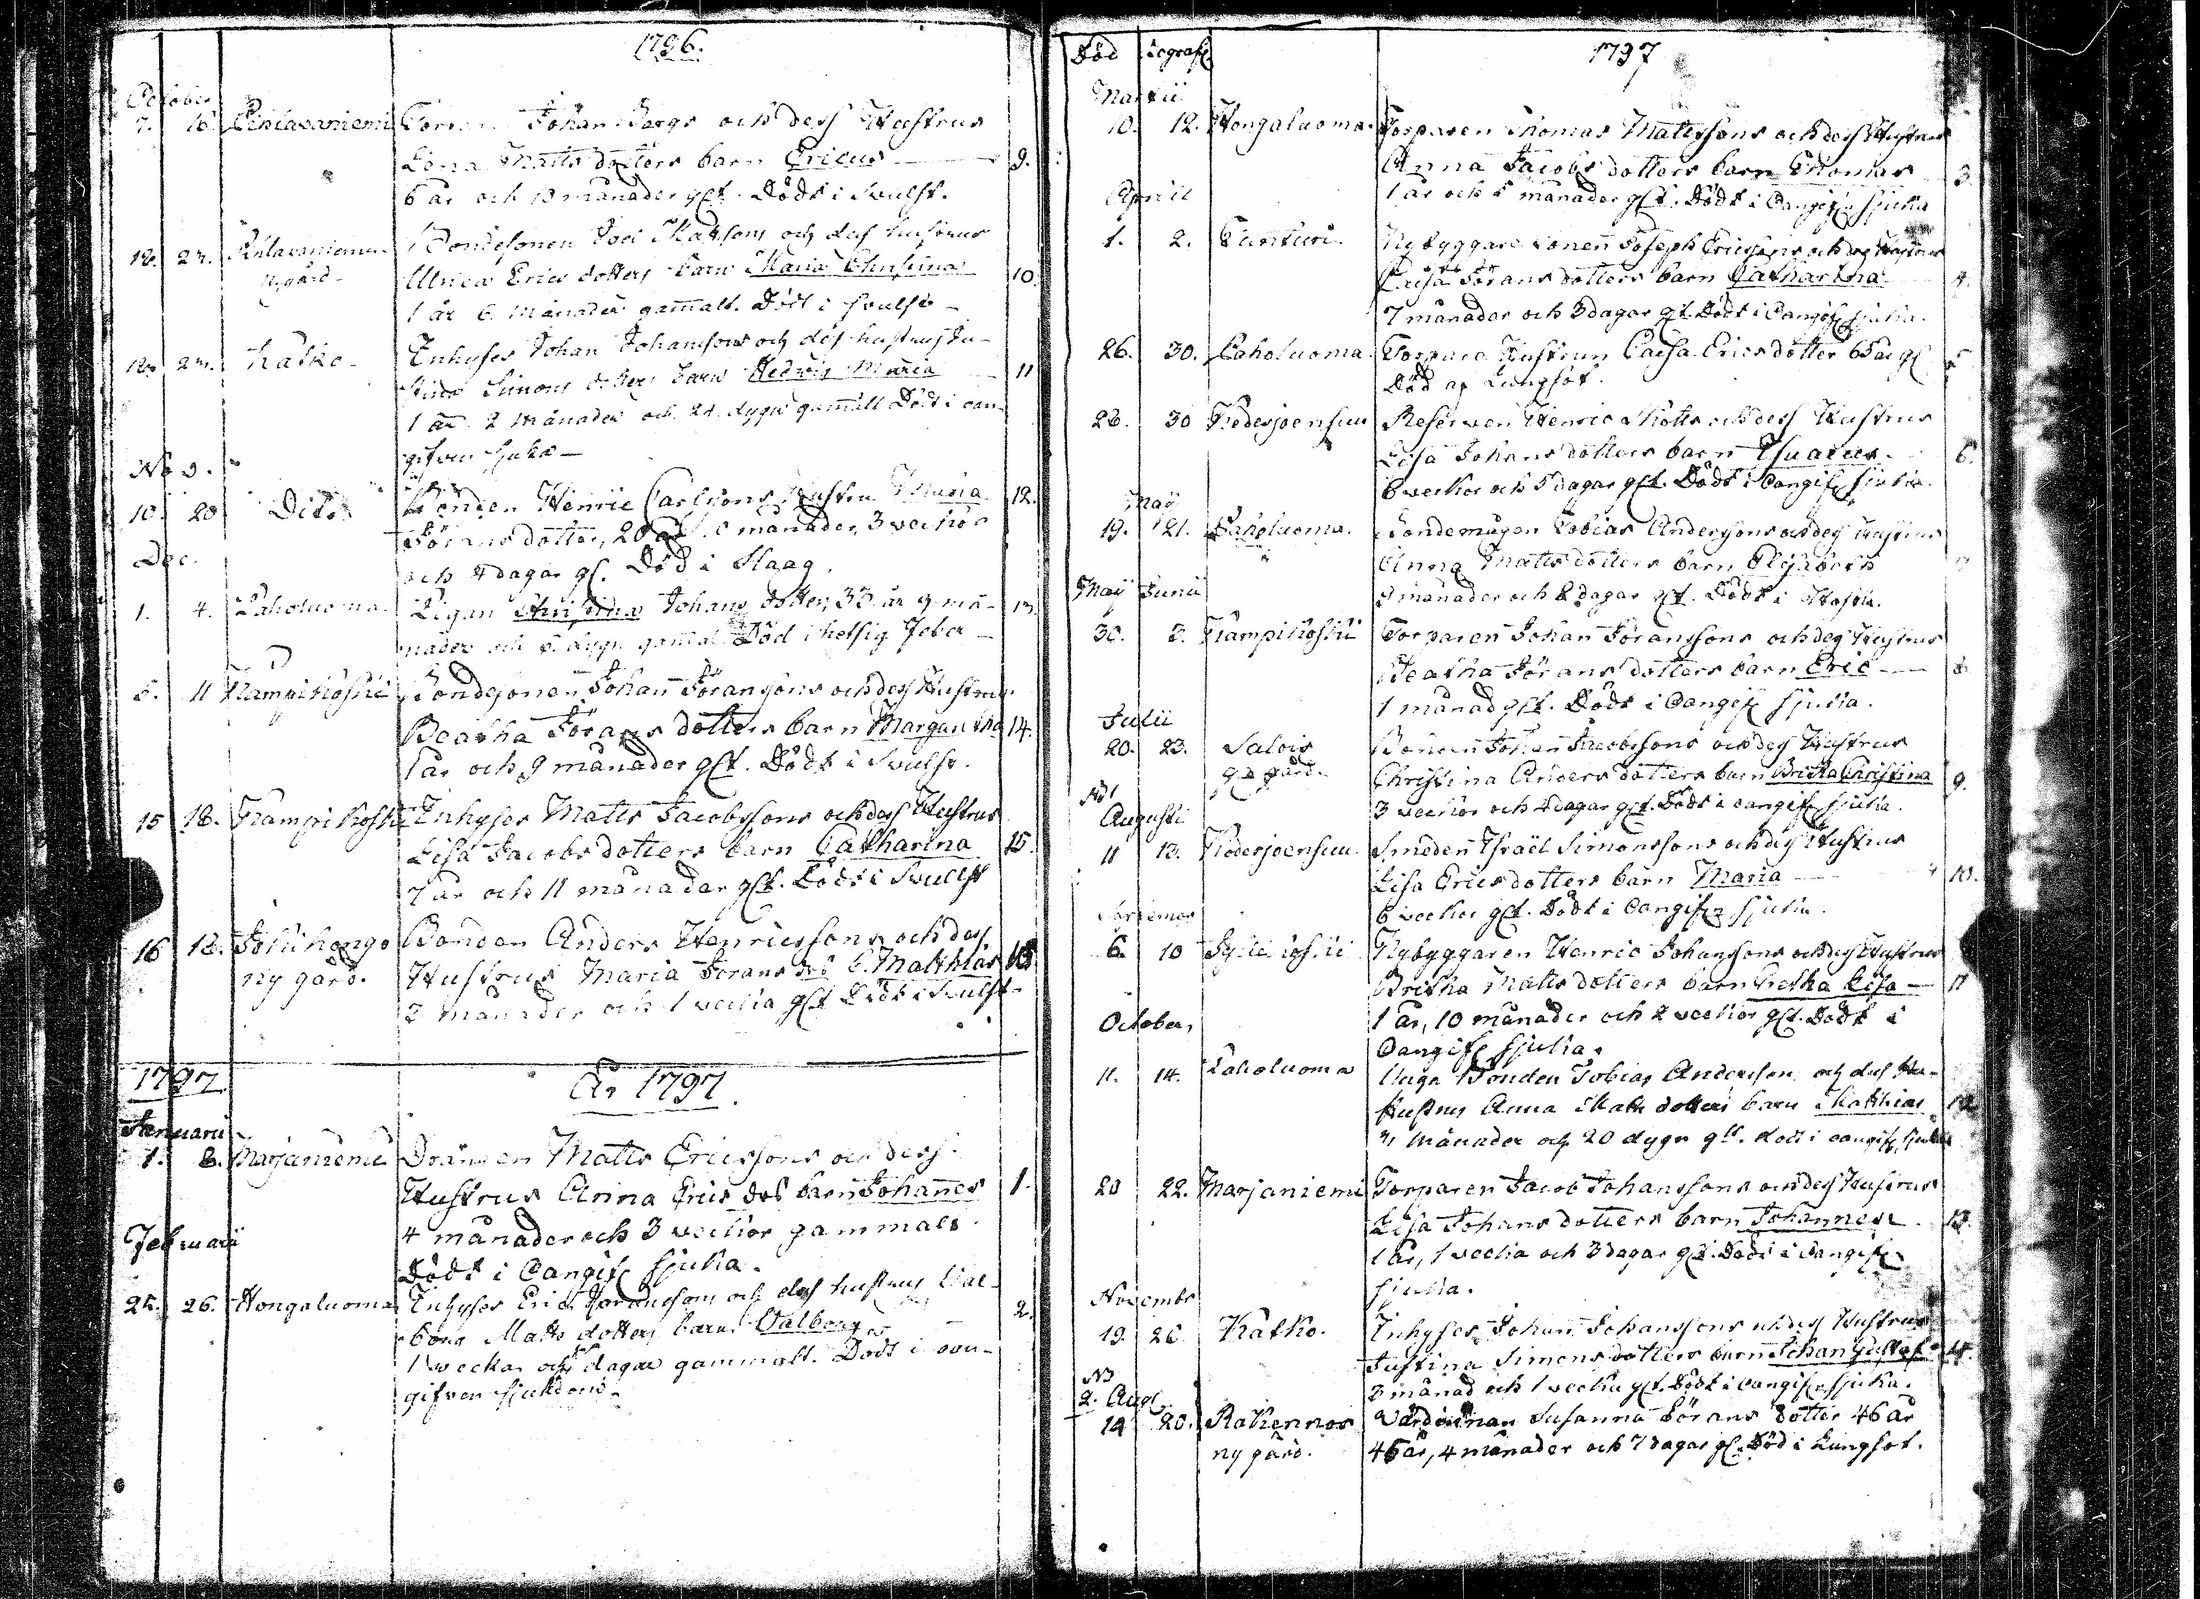 1796.
October
7. 16. Torpar Johan Bergs och dess Hustrus
Lena Matts dotters barn Ericus 9.
6 år och 10 månader glt. Dödt i Svulst.
18. 23. Bondesonen Joel Mattsons och dess hustrus
nygård Ulrica Erics dotters barn Maria Christina 10
1 år 6 månader gamalt. Dödt i svulst
23. Katko Inhyses Johan Johanssons och dess hustrus Ju-
stina Simons dotters barn Hedwig Maria 11
1 år 2 månader och 21 dygn gamalt Dödt i oan-
gifven sjuka
Nov.
10. 20 Dito Bonden Henric Carlssons Hustru Maria 12.
Jörans dotter, 20 år månader, 3 veckor
och 4 dagar gl. Död i Slaag.
Dec.
1. 4. Paholuoma Pigan Christina Johans dotter, 33 år 9 må- 13.
nader och 5 dygn gamal Död i hetsig Feber
5. 11 Kampikoski Bondesonen Johan Jöransons och dess Hustrus
Beatha Jörans dotters barn Margaretha 14.
1 år och 9 månader glt. Dödt i Svulst.
15 18. Kampikoski Inhyses Matts Jacobssons och dess Hustrus
Lisa Jacobs dotters barn Catharina 15.
7 år och 11 månader glt. Dödt i Svulst
16 18. Jokikongo Bonden Anders Henricssons och dess
ny gård. Hustrus Maria Jorans drs b. Matthias 16
2 månader och 1 vecka glt Dödt i Svulst
1797 År 1797.
Januarii
1. 8. Marjaniemi Drängen Matts Ericssons och dess
Hustrus Anna Erics drs barn Johannes 1.
4 månader och 3 veckor gammalt
Februarii
Dödt i Oangifn sjuka.
25. 26. Hongaluoma Inhyses Eric Joranssons och dess hustrus Val-
borg Matts dotters barn Valborg 2.
veckor och dagar gammalt. Dödt i oan-
gifven sjukdom.
Död Begrafn 1797
Martii
10. 12. Hongaluoma Torparen Thomas Matssons och dess Hustrus
Anna Jacobs dotters barn Thomas 3
1 år och 5 månader glt. Dödt i Oangifn sjuka
April
1. 2. Panturi. Nybyggare sonen Joseph Ericssons och dess Hustrus
Caisa Jörans dotters barn Catharina 4.
7 månader och 3 dagar gt. Dödt i Oangifn sjuka.
26. 30. Paholuoma Torpare Hustrun Caisa Erics dotter 65 år gl 5
Död af Lungsot.
26. 30 Reserven Henric Matts och dess Hustrus
Lisa Johans dotters barn 6.
6 veckor och 5 dagar glt. Dödt i Oangifn sjuka.
Maij
19. 21. Paholuoma. Bondemågen Tobias Anderssons och dess Hustrus
Anna Matts dotters barn Elisabeth 7
9 månader och 2 dagar glt. Dödt i Hosta.
Maij Junii
30. 3. Kampikoski Torparen Johan Jöranssons och dess Hustrus
Beatha Jörans dotters barn Eric 8
1 månad glt. Dödt i Oangifn sjuka.
Julii
20. 23. Salois Bonden Johan Jacobssons och dess Hustrus
gla gård. Christina Anders dotters barn Britha Christina 9.
3 veckor och 4 dagar glt. Dödt i oangifn sjuka.
No 1
Augusti
11 13. Smeden Israël Simonssons och dess Hustrus
Lisa Erics dotters barn Maria 10.
6 veckor glt. Dödt i Oangifn sjuka.
6. 10 Nybyggaren Henric Johanssons och dess Hustrus
Britha Matts dotters barn Gretha Lisa 11
1 år, 10 månader och 2 veckor glt. Dödt i
October,
Oangifn sjuka.
11. 14. Paholuoma Unga Bonden Tobias Anderssons och dess Hu-
Hustrus Anna Matts dotters barn Matthias 12
månader och 20 dygn glt. dödt i oangifn sjuka
20 22. Marjaniemi Torparen Jacob Johanssons och dess Hustrus
Lisa Johans dotters barn Johannes 13.
1 år, 1 vecka och 3 dagar glt. Dödt i Oangifn
sjuka.
Novembr
19. 26. Katko. Inhyses Johan Johanssons och dess Hustrus
Justina Simons dotters barn Johan Gustaf 14.
3 månad och 1 vecka glt. Dödt i oangifn sjuka.
No
2. Aug.
14 20. Rakennos Värdinnan Susanna Jörans dotter 46 år
ny gård. 46 år, 4 månader och 7 dagar gl. Död i Lungsot.